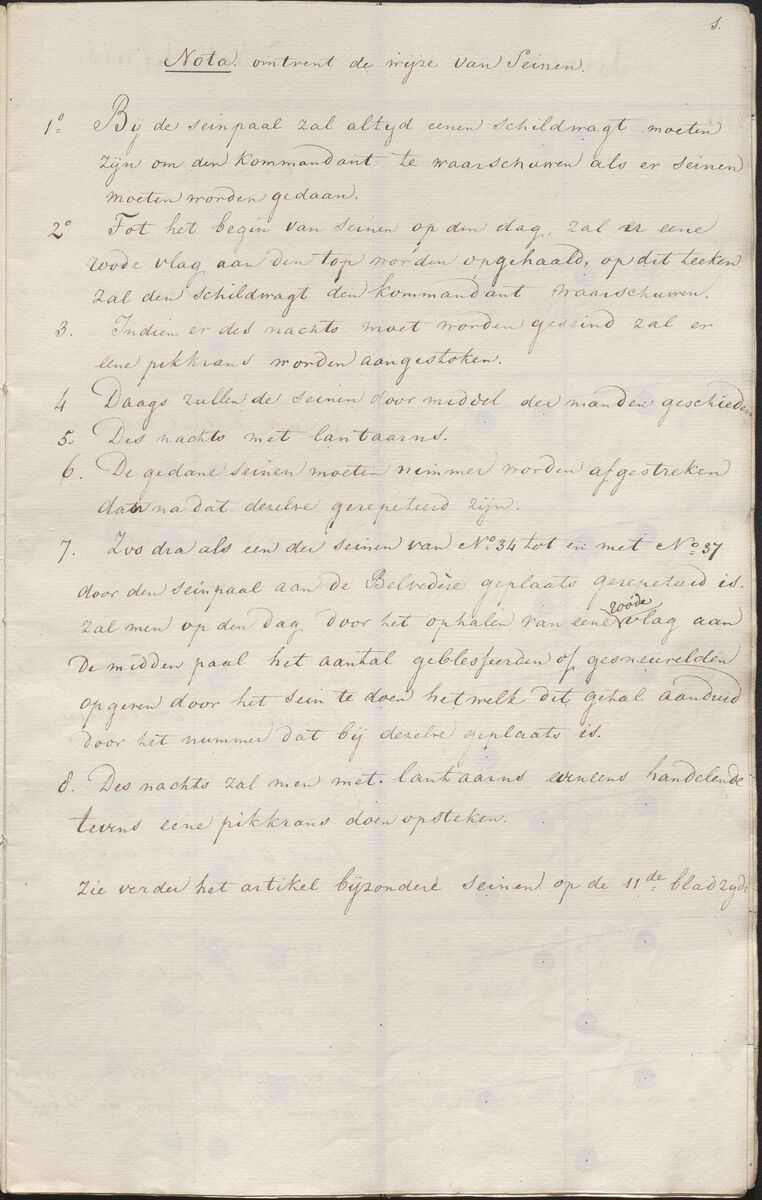 1.
Nota. omtrent de wijze van Seinen.
1º Bij de seinpaal zal altyd eenen schildwagt moeten
zijn om den kommandant te waarschuwen als er seinen
moeten worden gedaan.
2º Tot het begin van seinen op den dag, zal er eene
roode vlag aan den top worden opgehaald, op dit teeken
zal den schildwagt den kommandant waarschuwen.
3. Indien er des nachts moet worden geseind zal er
eene pikkrans worden aangestoken.
4 Daags zullen de seinen door middel der manden geschieden
5. Des nachts met lantaarns.
6. De gedane seinen moeten nimmer worden afgestreken
dan na dat dezelve gerepeteerd zijn.
7. Zoo dra als een der seinen van Nº 34 tot en met Nº 37
door den seinpaal aan de Belvedère geplaats gerepeteerd is.
zal men op den dag door het ophalen van eene roode vlag aan
de midden paal het aantal geblesseerden of gesneuvelden
opgeven door het sein te doen hetwelk dit getal aanduid
door het nummer dat bij dezelve geplaats is.
8. Des nachts zal men met lantaarns eveneens handelende
tevens eene pikkrans doen opsteken.
Zie verder het artikel bijzondere seinen op de 11de bladzyde